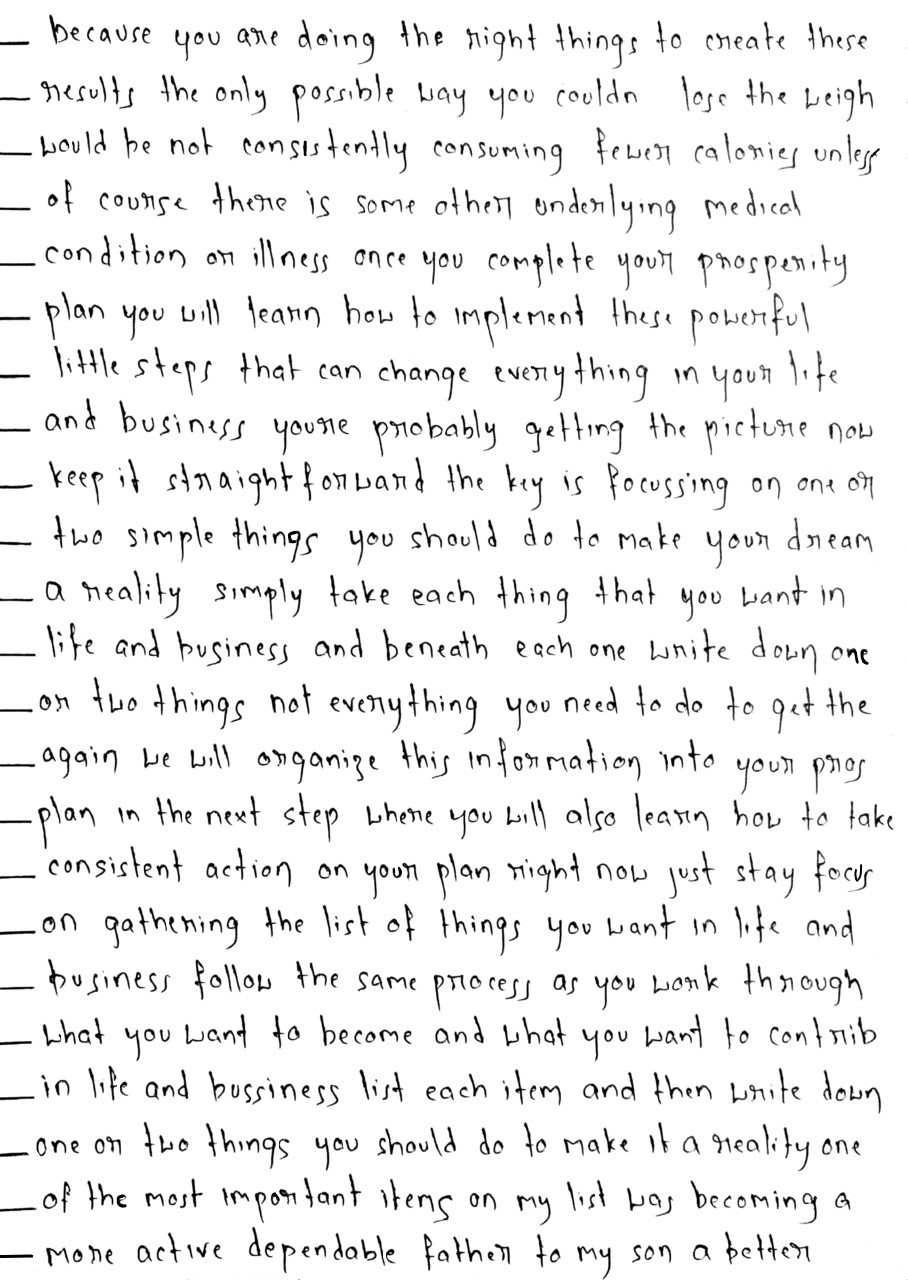 because you are doing the right things to create these
results the only possible way you couldn lose the weigh
would be not consistently consuming fewer calories unless
of course there is some other underlying medical
condition or illness once you complete your prosperity
plan you will learn how to implement these powerful
little steps that can change everything in your life
and business youre probably getting the picture now
keep it straightforward the key is focussing on one or
two simple things you should do to make your dream
a reality simply take each thing that you want in
life and business and beneath each one write down one
or two things not everything you need to do to get the
again we will organize this information into your pros
plan in the next step where you will also learn how to take
consistent action on your plan right now just stay focus
on gathering the list of things you want in life and
business follow the same process as you work through
what you want to become and what you want to contrib
in life and bussiness list each item and then write down
one or two things you should do to make it a reality one
of the most important items on my list was becoming a
more active dependable father to my son a better